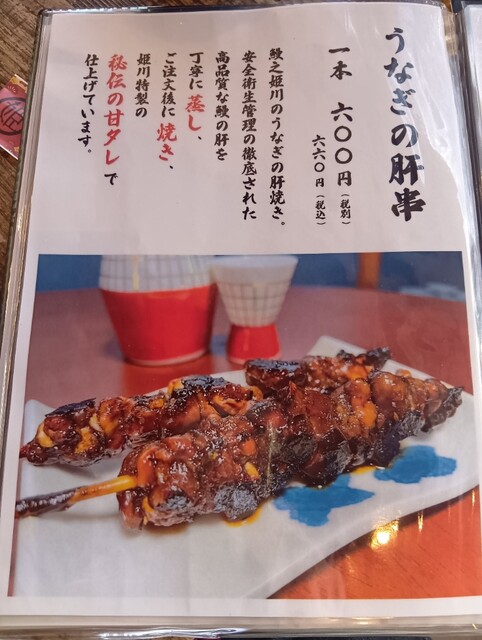 うなぎの肝串
一本 六〇〇円（税別）
六六〇円（税込）
鰻之姫川のうなぎの肝焼き。
安全衛生管理の徹底された
高品質な鰻の肝を
丁寧に蒸し、
ご注文後に焼き、
姫川特製の
秘伝の甘タレで
仕上げています。